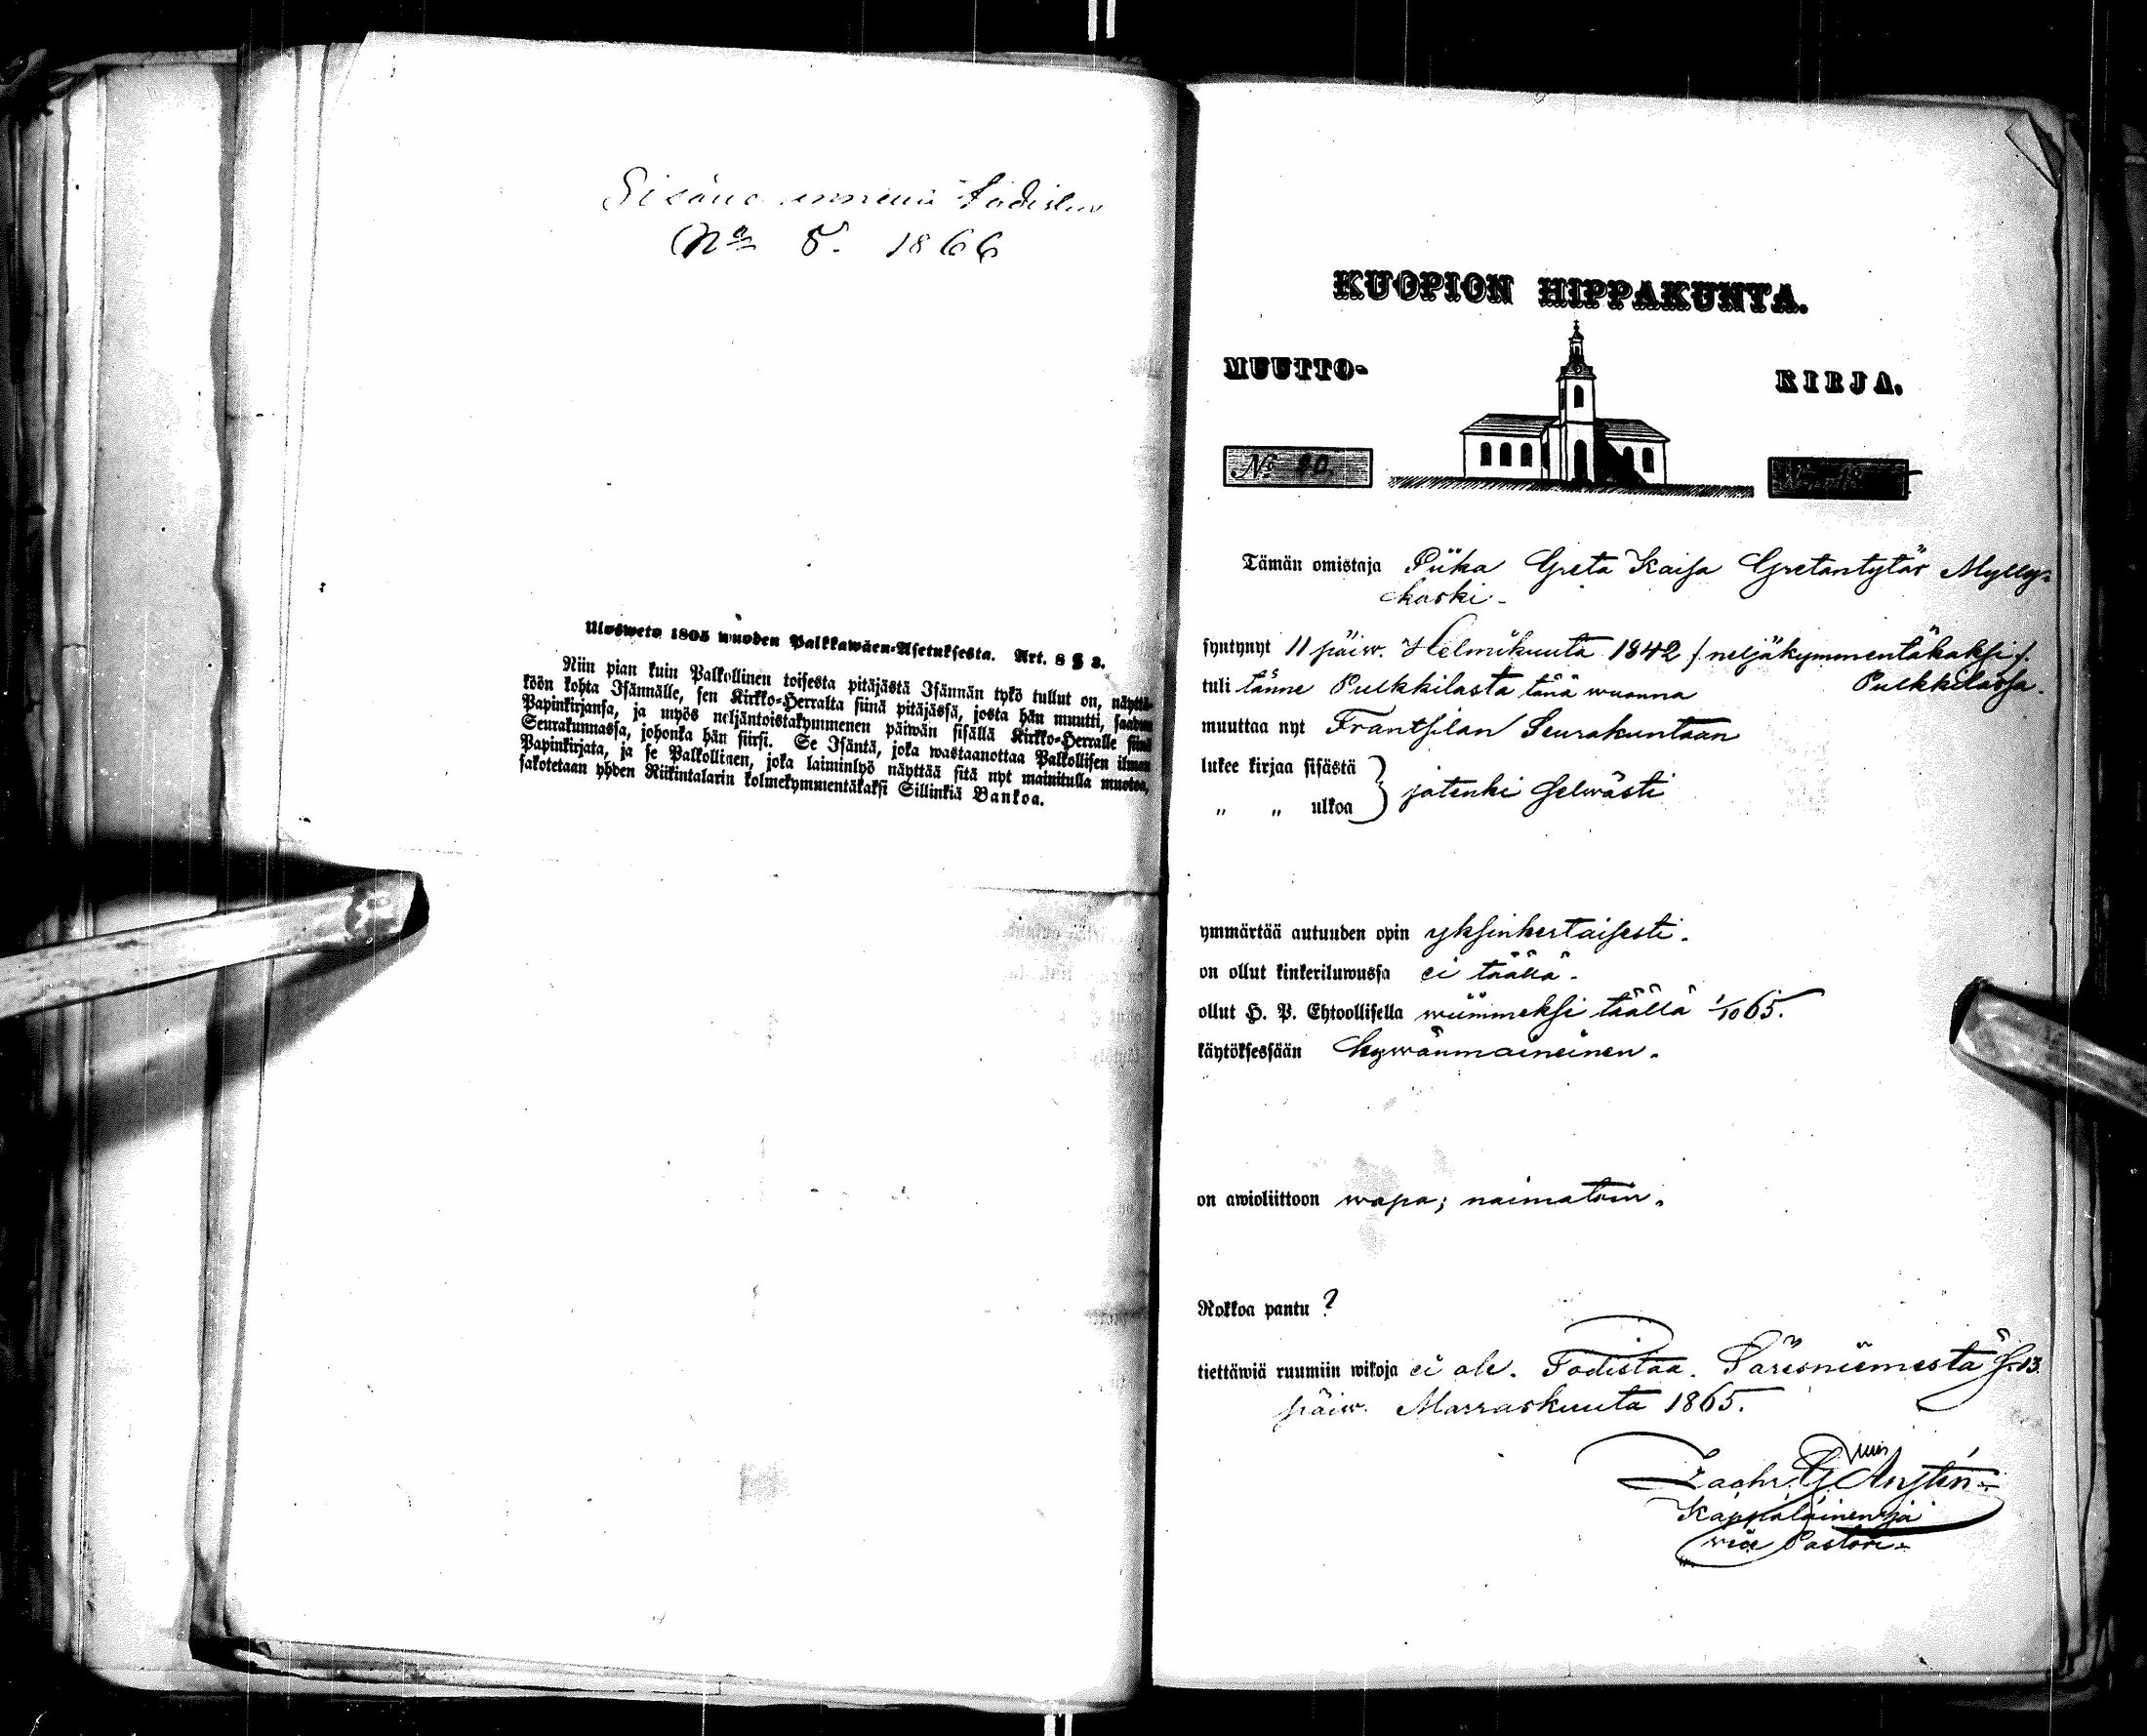 No 5. 1866
Ulosweto 1805 wuoden Palkkawäen-Asetuksesta. Art. 8 § 3.
Niin pian kuin Palkollinen toisesta pitäjästä Isännän tykö tullut on, näyttä-
köön kohta Isännälle, sen Kirkko-Herralta siinä pitäjässä, josta hän muutti, saadun
Papinkirjansa, ja myös neljäntoistakymmenen päiwän sisällä Kirkko-Herralle siinä
Seurakunnassa, johonka hän siirsi. Se Isäntä, joka wastaanottaa Palkollisen ilman
Papinkirjata, ja se Palkollinen, joka laiminlyö näyttää sitä nyt mainitulla muotoa,
sakotetaan yhden Riikintalarin kolmekymmentäkaksi Sillinkiä Bankoa.
KUOPION HIPPAKUNTA.
MUUTTO- KIRJA.
No
Tämän omistaja Piika Greta Kaisa Gretantytär Mylly-
koski.
syntynyt 11 päiw. Helmikuuta 1842 /neljäkymmentäkaksi/.
Pulkkilassa.
tuli tänne Pulkkilasta tänä wuonna
muuttaa nyt Frantsilan Seurakuntaan
lukee kirjaa sisästä } jotenki selwästi
" " ulkoa
ymmärtää autuuden opin yksinkertaisesti.
on ollut kinkeriluwussa ei täällä.
ollut H. P. Ehtoollisella wiimmeksi täällä 1/10 65.
käytöksessään hywänmaineinen.
on awioliittoon wapa; naimatoin.
Rokkoa pantu ?
tiettäwiä ruumiin wikoja ei ole. Todistaa. Säresniemestä s. 13.
päiw. Marraskuuta 1865.
Zachr. G.
Kappalainen ja
vice Pastori.